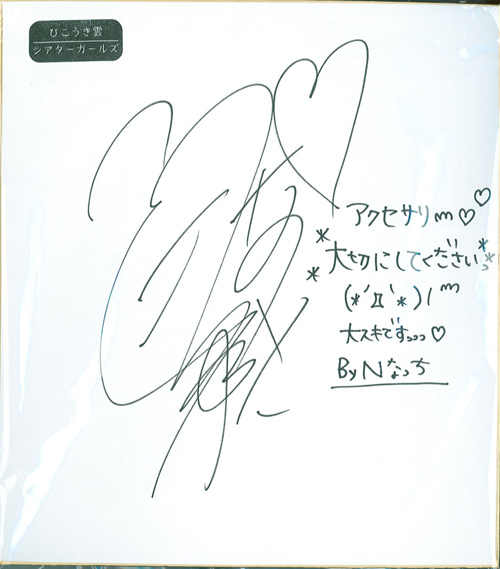 ひこうき雲
シアターガールズ
アクセサリm♡♡
*大切にしてください*
*(*´Д`*)/m
大スキですっっっ♡
By Nなっち